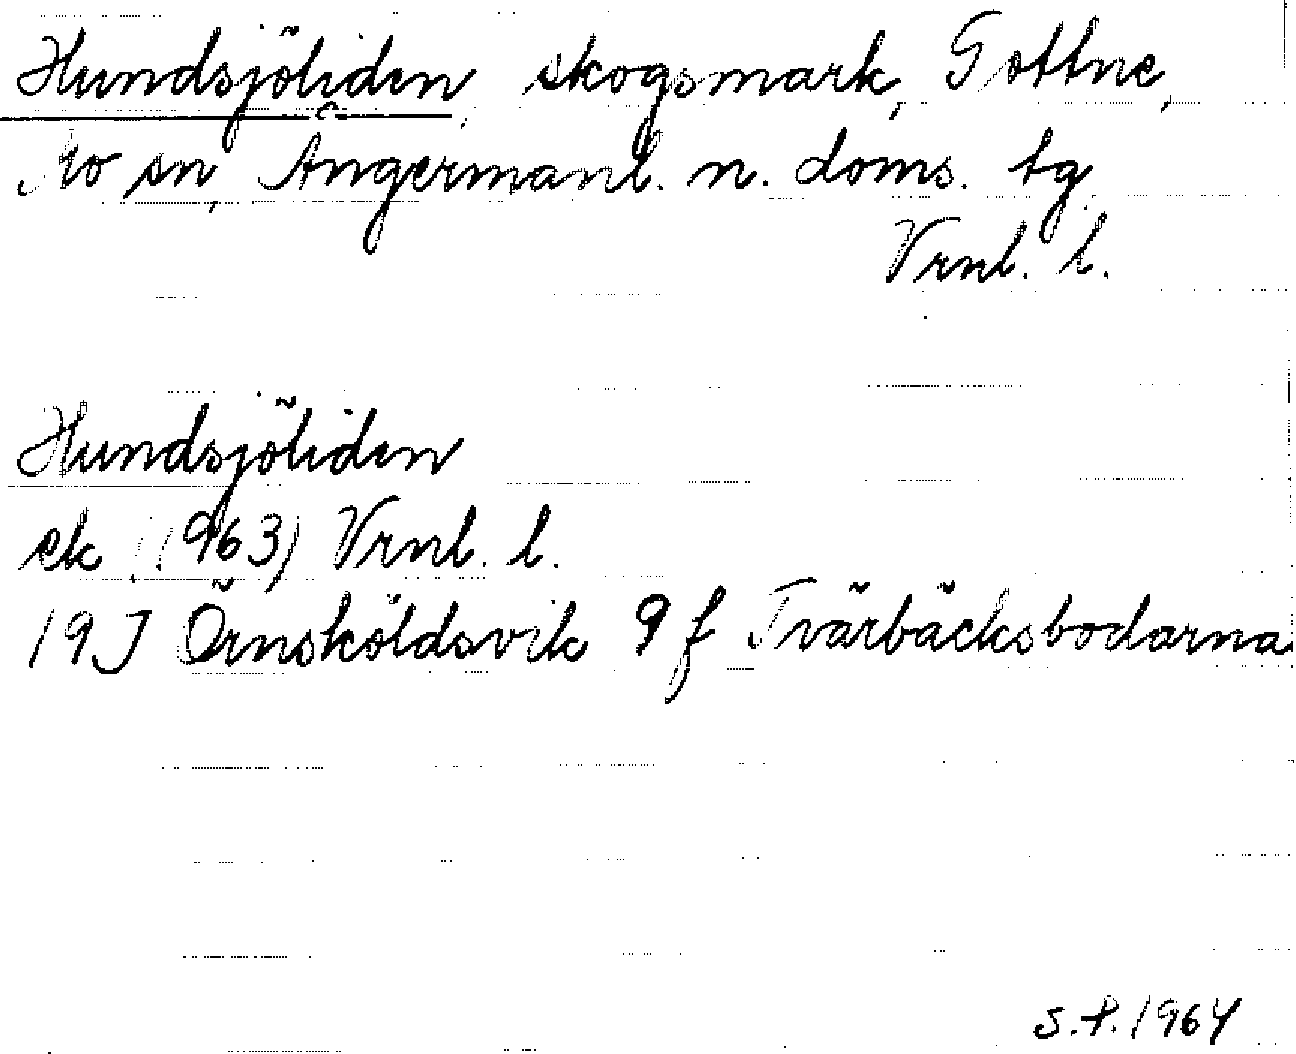 Hundsjöliden, skogsmark, Gottne,
Mo sn, Ångermanl. n. doms. tg
Vrnl. l.
Hundsjöliden
ek (1963) Vrnl. l.
19J Örnsköldsvik 9 f Tvärbäcksbodarna
S.P. 1964